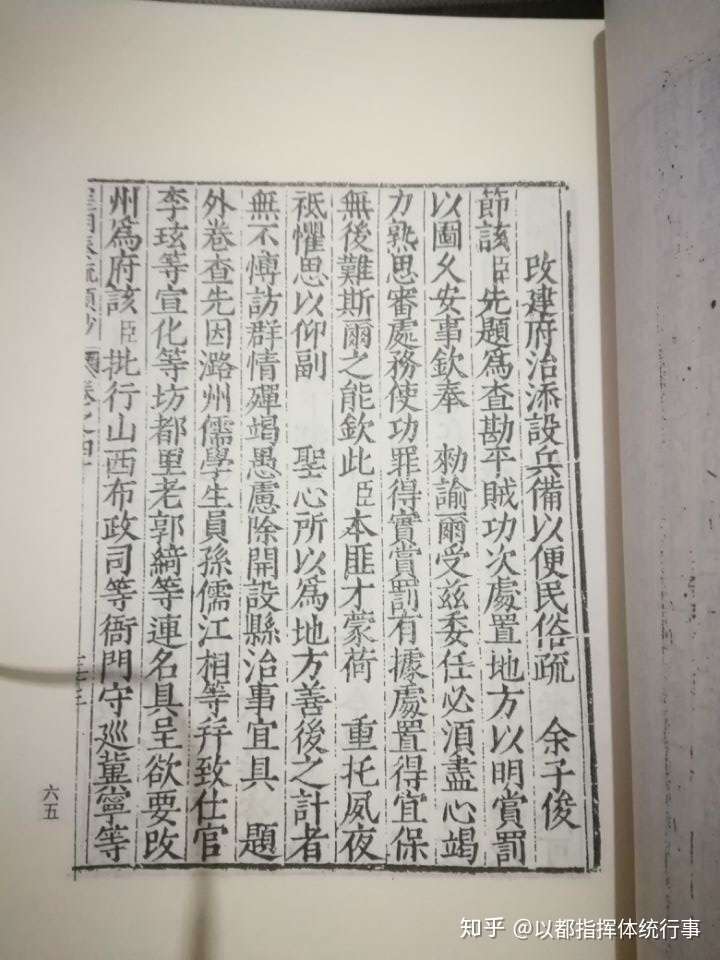 改建府治添設兵備以便民俗疏 余子俊
節該臣先題爲查勘平賊功次處置地方以明賞罰
以圖久安事欽奉 勑諭爾受兹委任必須盡心竭
力熟思審處務使功罪得實賞罰有據處置得宜保
無後難斯爾之能欽此臣本匪才蒙荷 重托夙夜
祗懼思以仰副 聖心所以爲地方善後之計者
無不愽訪群情殫竭愚慮除開設縣治事宜具 題
外卷查先因潞州儒學生員孫儒江相等幷致仕官
李玹等宣化等坊都里老郭綺等連名具呈欲要改
州爲府該臣批行山西布政司等衙門守巡冀寧等
卷之四十
六五
知乎 @以都指挥体统行事